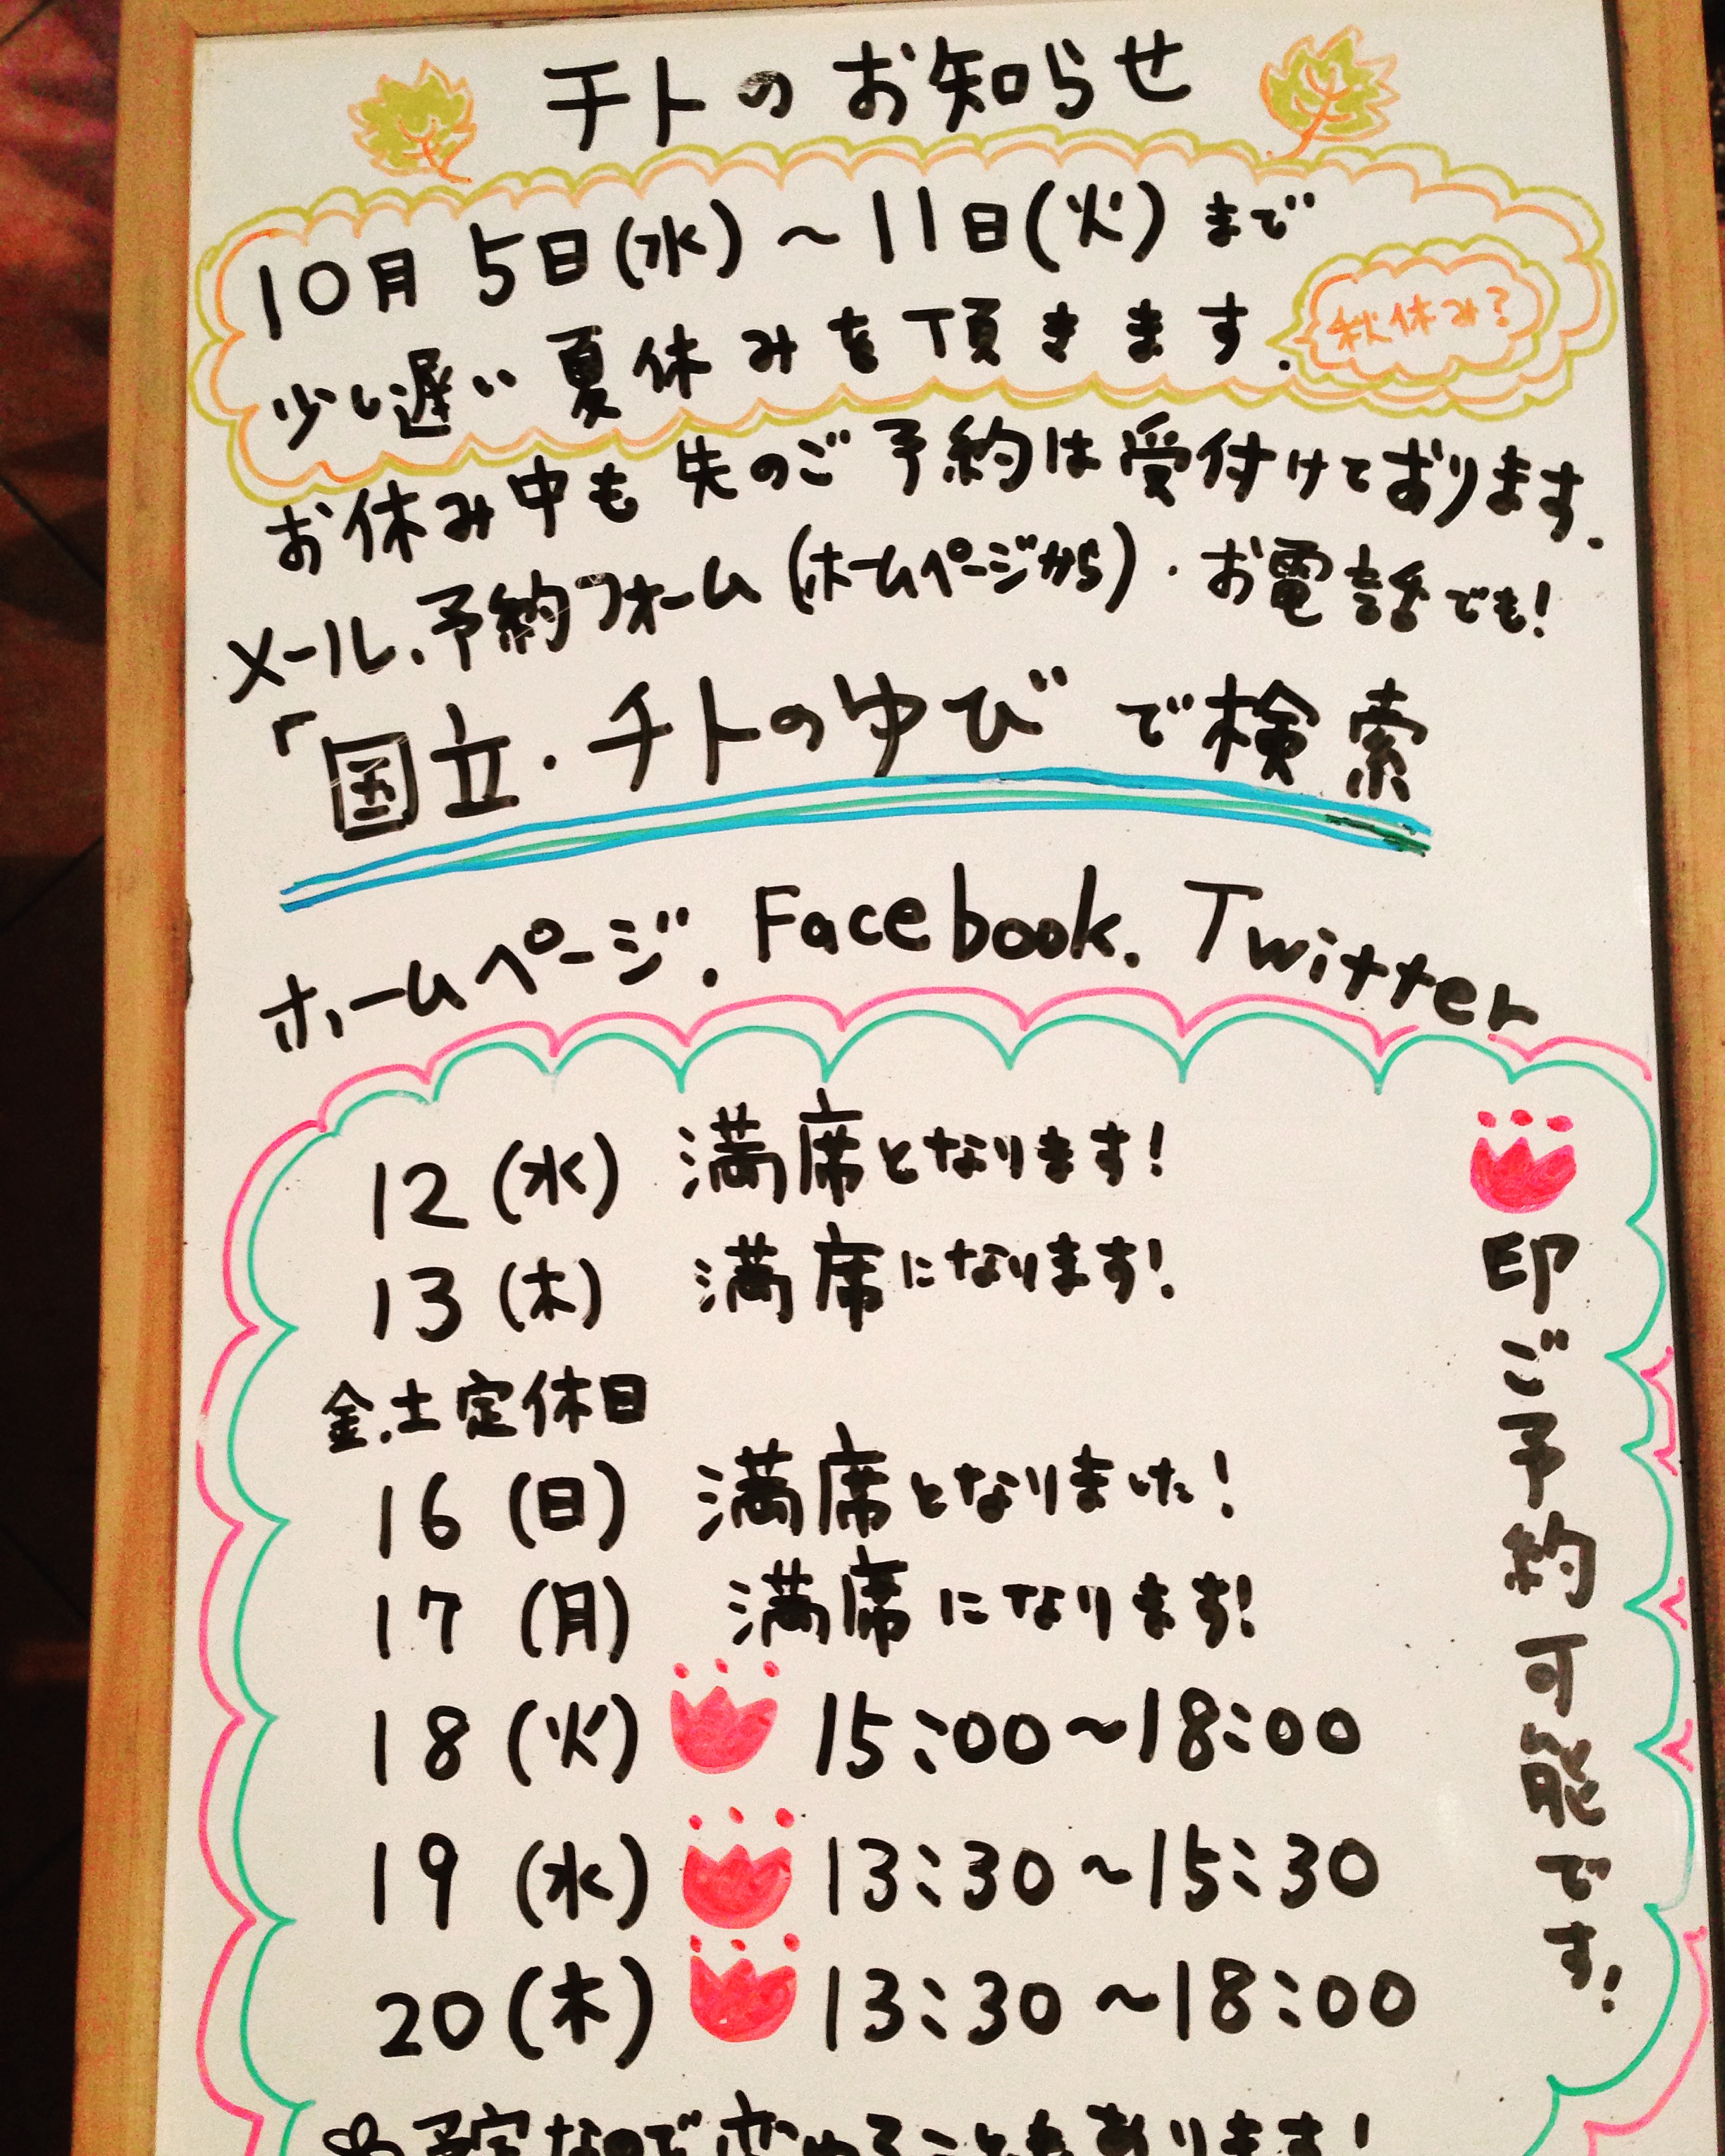 チトのお知らせ
10月5日(水)～11日(火)まで
少し遅い夏休みを頂きます.
秋休み?
お休み中も先のご予約は受付けております.
メール.予約フォーム(ホームページから)・お電話でも!
「国立・チトのゆび"で検索
ホームページ.Facebook.Twitter
12(水) 満席となります!
13(木) 満席になります!
金.土定休日
16(日) 満席となりました!
17(月) 満席になります!
18(火) 15:00～18:00
19(水) 13:30～15:30
20(木) 13:30～18:00
印ご予約可能です!
予定なので変わることもあります!